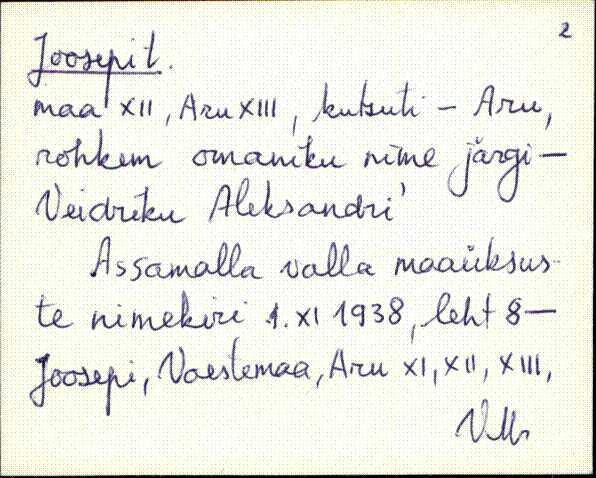 2
Joosepi t.
maa XII, Aru XIII, kutsuti - Aru,
rohkem omaniku nime järgi -
Veidriku Aleksandri'
Assamalla valla maaüksus-
te nimekiri 1. XI 1938, leht 8 -
Joosepi, Vaestemaa, Aru XI, XII, XIII,